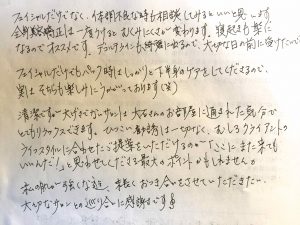 フェイシャルだけでなく、体調不良な時も相談してみるといいと思います。
全身骨格矯正は一度うけるとむくみにくさが変わります。寝起きも楽に
なるのでオススメです。デコルテラインも綺麗に出るので、大切な日の前に受けたい
フェイシャルだけでもパック時はしっかりと下半身のケアをしてくださるので、
実はそちらも楽しみにうかがっております(笑)
清潔で 大好きな サロンは大家さんのお部屋に通された気分で
とてもリラックスできます。ひつこい勧誘は一切なく、むしろクライアントの
ライフスタイルに合わせたご提案をいただけるので「ここにまた来ても
いいんだ!」と思わせてくださる最大のポイントかもしれません。
私の肌が強くなる迄、末長くおつき合いをさせていただきたい、
大切なサロンとの巡り合いに感謝です